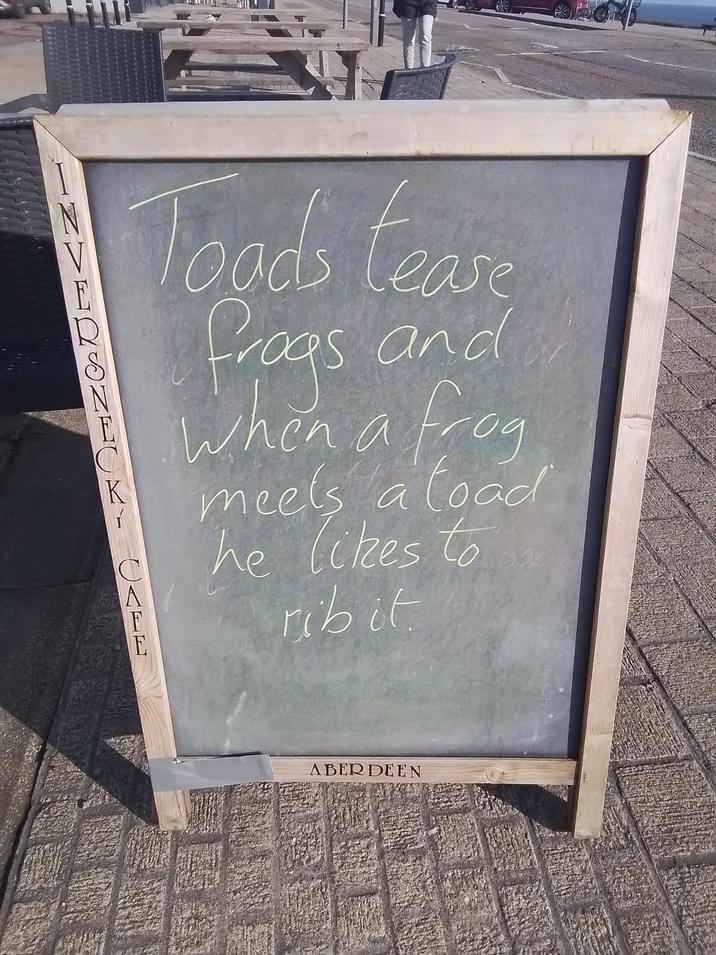 Toads tease
frogs and
when a frog
meets a toad
he likes to
rib it.
INVERSNECKY CAFE
ABERDEEN